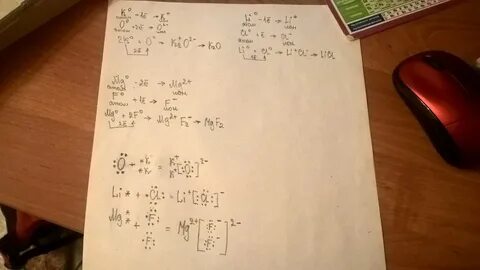 K⁰ - 1ē → K⁻
атом ион
O⁰ + 2ē → O²⁻
атом ион
2K⁰ + O⁰ → K₂⁺O²⁻ → K₂O
2ē
Li⁰ - 1ē → Li⁺
атом ион
Cl⁰ + ē → Cl⁻
атом ион
Li⁰ + Cl⁰ → Li⁺Cl⁻ → LiCl
1ē
Mg⁰ - 2ē → Mg²⁺
атом ион
F⁰ + 1ē → F⁻
атом ион
Mg⁰ + 2F⁰ → Mg²⁺F₂⁻ → MgF₂
2ē
:Ö: + *K *K = K⁺ K⁺ [:Ö:]²⁻
Li* + •Cl: = Li⁺[:Cl:]⁻
Mg** + •F: •F: = Mg²⁺[:F:⁻ :F:⁻]²⁻